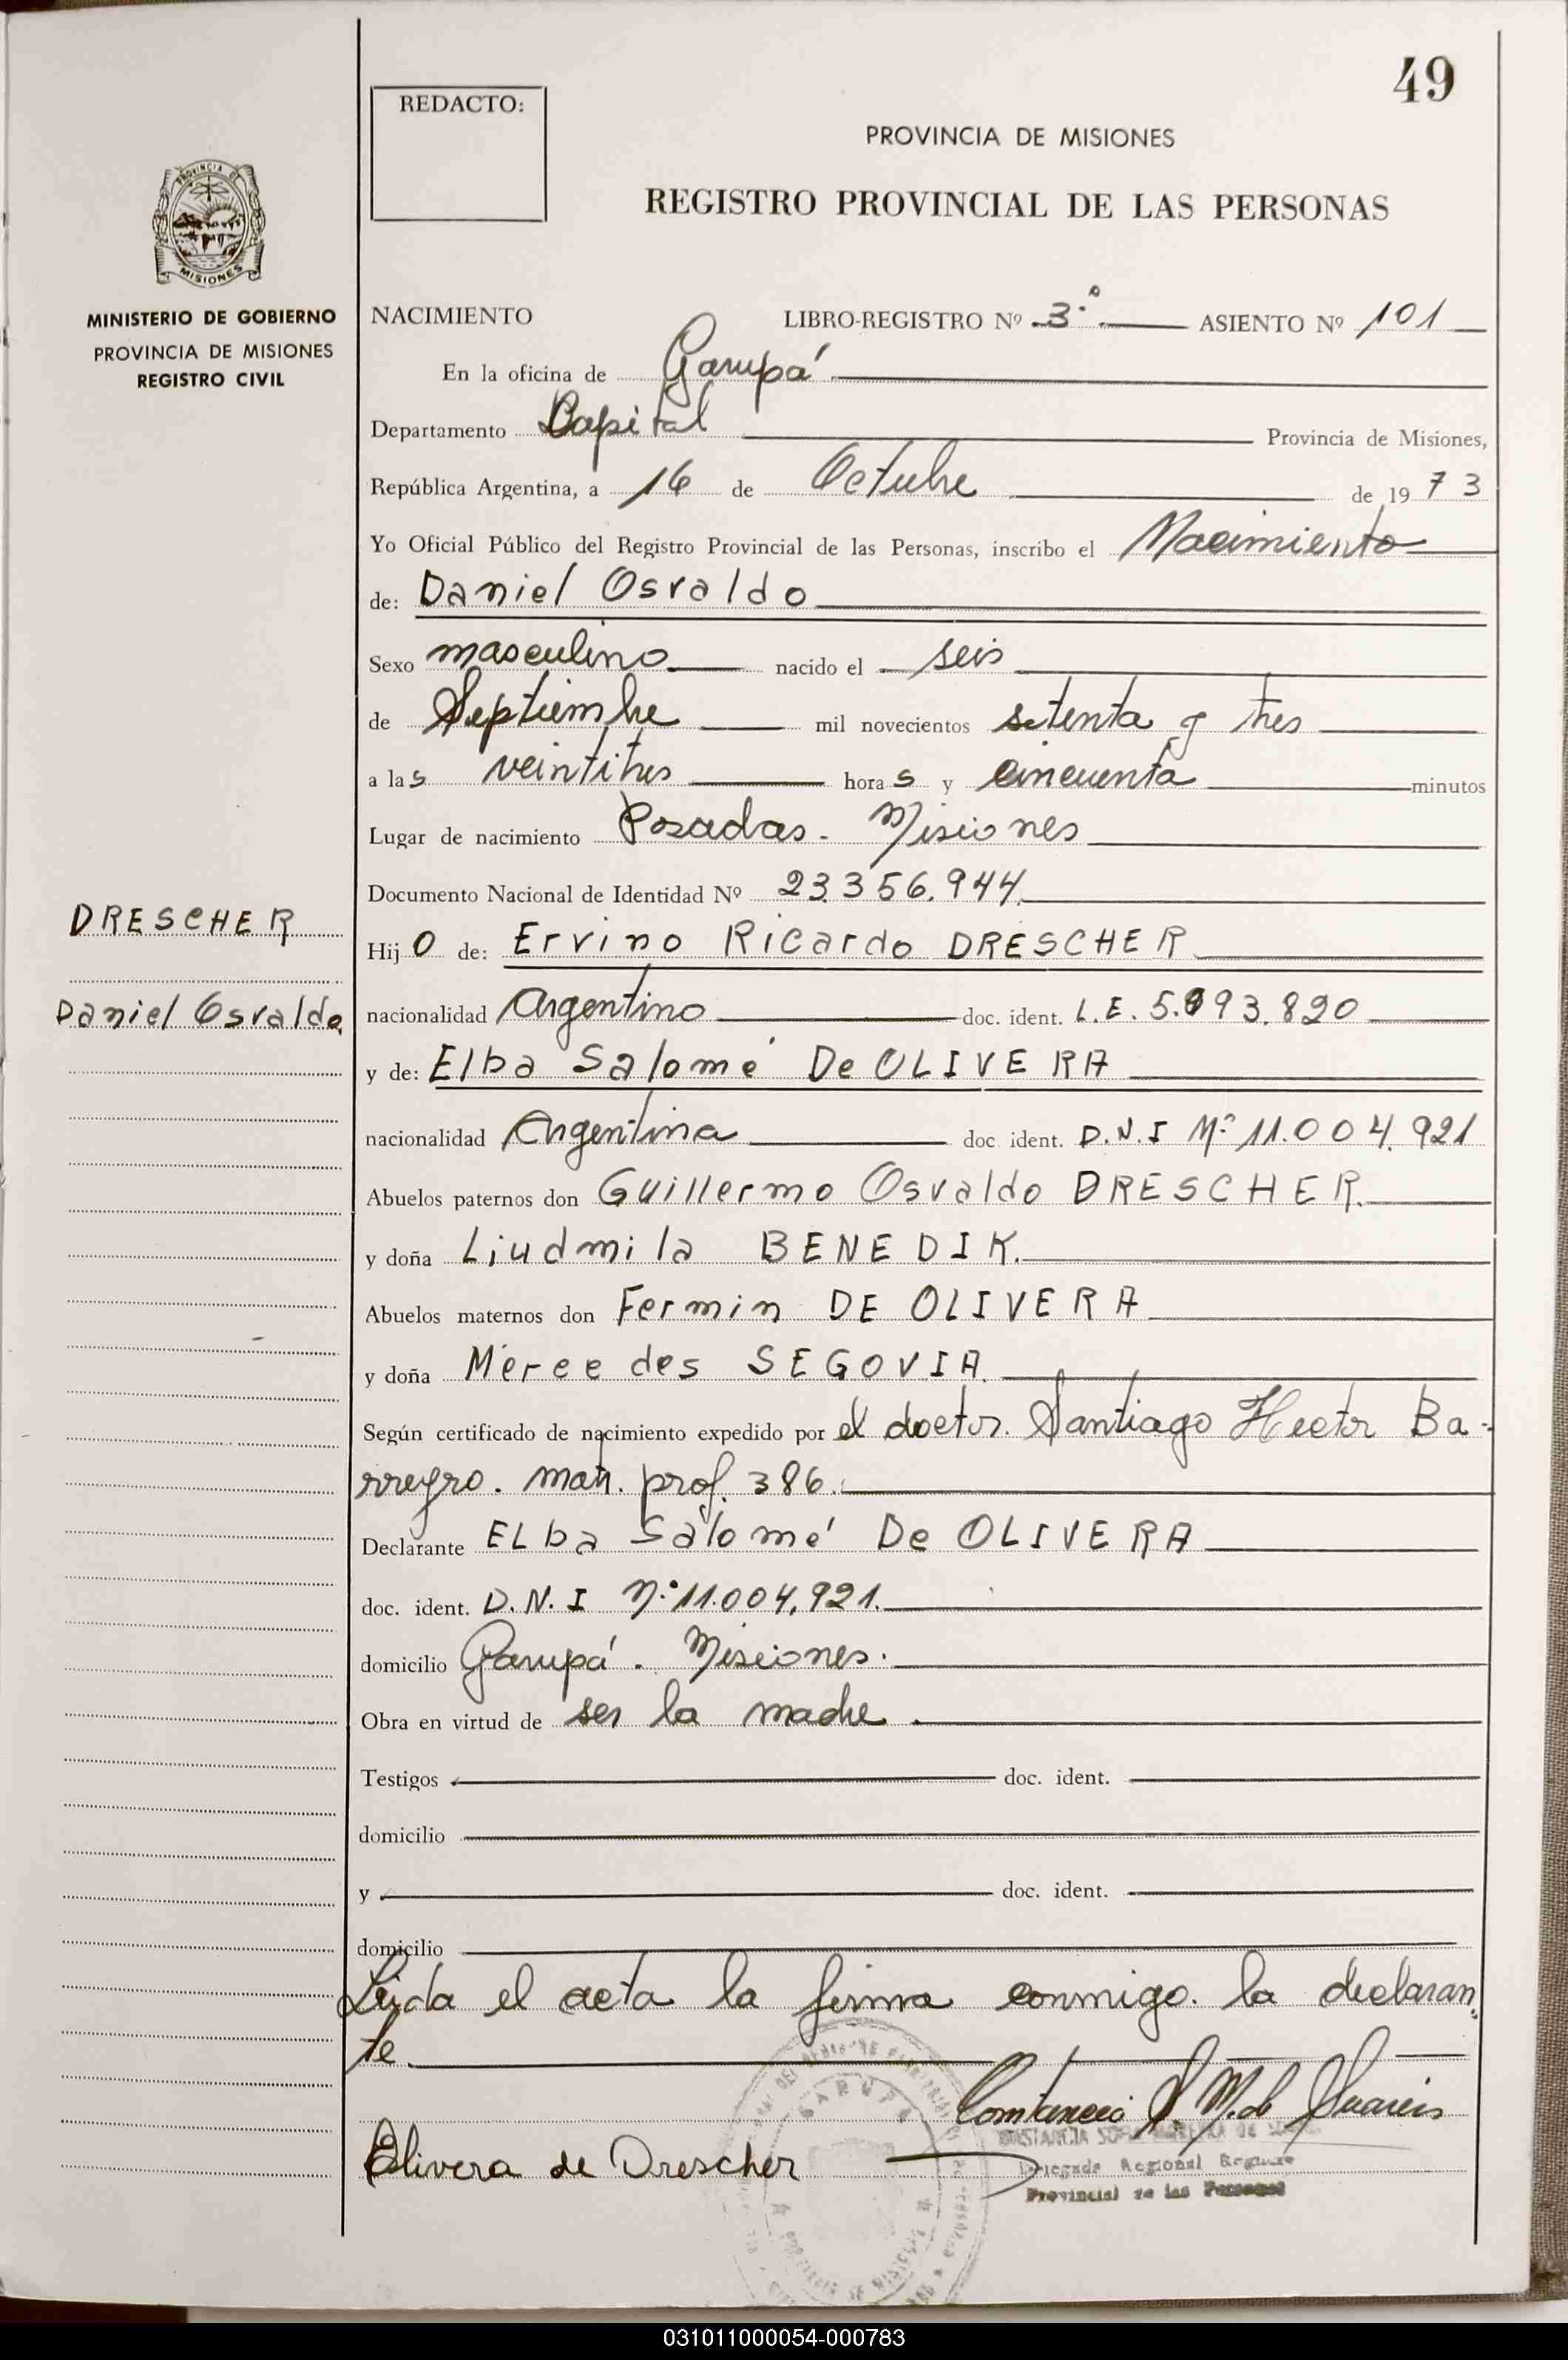 49
REDACTO:
PROVINCIA DE MISIONES
REGISTRO PROVINCIAL DE LAS PERSONAS
PROVINCIA DE
MISIONES
MINISTERIO DE GOBIERNO
PROVINCIA DE MISIONES
REGISTRO CIVIL
NACIMIENTO LIBRO-REGISTRO Nº 3.º ASIENTO Nº 101
En la oficina de Garupá
Departamento Capital Provincia de Misiones,
República Argentina, a 16 de Octubre de 1973
Yo Oficial Público del Registro Provincial de las Personas, inscribo el Nacimiento
de: Daniel Osvaldo
Sexo masculino nacido el seis
de Septiembre mil novecientos setenta y tres
a las veintitres horas y cincuenta minutos
Lugar de nacimiento Posadas - Misiones
Documento Nacional de Identidad Nº 23.356.944.
DRESCHER
Hijo de: Ervino Ricardo DRESCHER
Daniel Osvaldo
nacionalidad Argentino doc. ident. L.E.
y de: Elba Salomé De OLIVERA
nacionalidad Argentina doc. ident. D.N.I Nº 11.004.921
Abuelos paternos don Guillermo Osvaldo DRESCHER.
y doña Liudmila BENEDIK.
Abuelos maternos don Fermin DE OLIVERA
y doña Mercedes SEGOVIA.
Según certificado de nacimiento expedido por el doctor. Santiago Hector Ba-
rreyro. mat. prof. 386.
Declarante ELba Salomé De OLIVERA
doc. ident. D.N.I Nº 11.004.921.
domicilio Garupá. Misiones.
Obra en virtud de ser la madre.
Testigos doc. ident.
domicilio
y doc. ident.
domicilio
Leida el acta la firma conmigo. la declaran
te.
Olivera de Drescher
Delegada Regional Registro
Provincial de las Personas
031011000054-000783